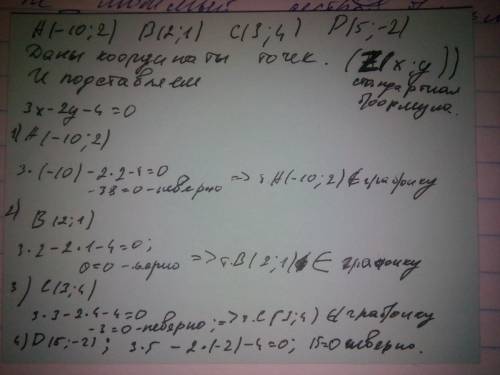 A(-10; 2) B(2; 1) C(3; 4) D(5; -2)
Даны координаты точек. (Z(x; y))
И подставляем стандартная формула.
3x-2y-4=0
1) A(-10; 2)
3·(-10)-2·2-4=0
-38=0-неверно => т.A(-10; 2) ∉ графику
2) B(2; 1)
3·2-2·1-4=0;
0=0-верно => т.B(2; 1) ∈ графику
3) C(3; 4)
3·3-2·4-4=0
-3=0-неверно; => т.C(3; 4) ∉ графику
4) D(5; -2); 3·5-2·(-2)-4=0; 15=0 неверно.